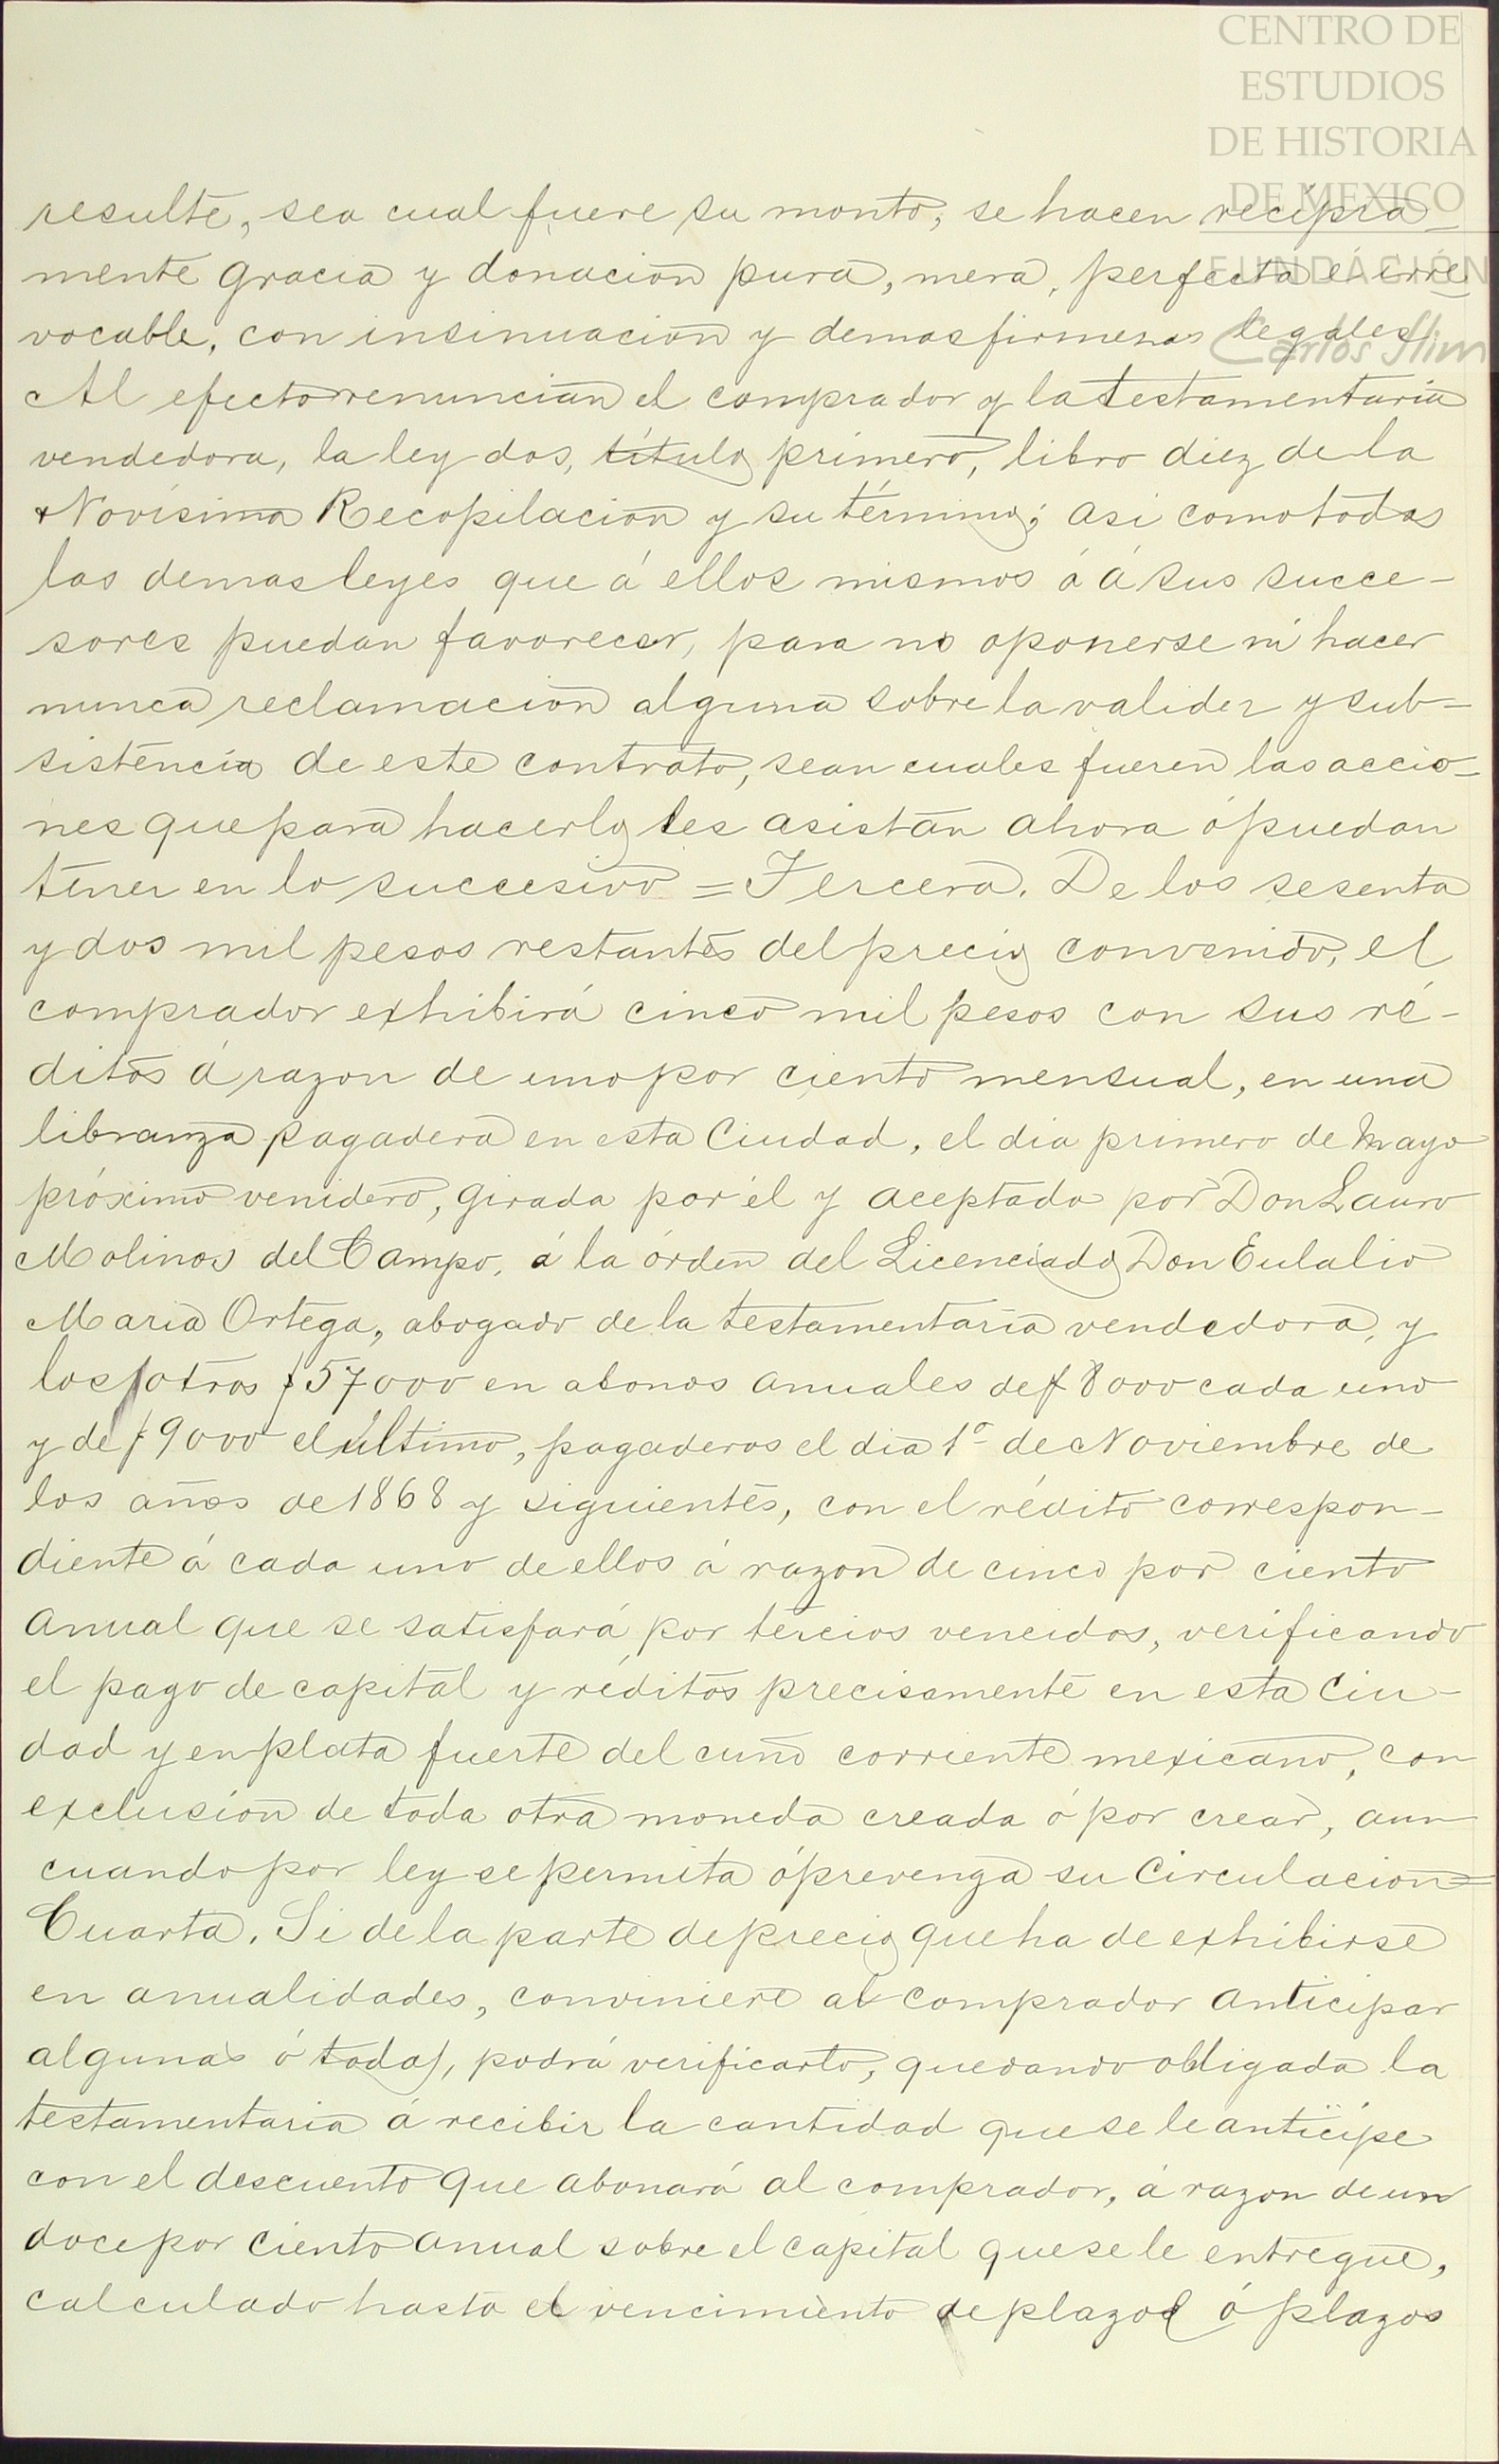 CENTRO DE
ESTUDIOS
DE HISTORIA
DE MEXICO
FUNDACIÓN
Carlos Slim
resulte, sea cual fuere su monto, se hacen recípra-
mente gracia y donacion pura, mera, perfecta é irre-
vocable, con insinuacion y demas firmezas legales.
Al efecto renuncian el comprador y la testamentaria
vendedora, la ley dos, título primero, libro diez de la
Novísima Recopilacion y su término; asi como todas
las demas leyes que á ellos mismos ó á sus succe-
sores puedan favorecer, para no oponerse ni hacer
nunca reclamacion alguna sobre la validez y sub-
sistencia de este contrato, sean cuales fueren las accio-
nes que para hacerlo les asistan ahora ó puedan
tener en lo succesivo = Tercera. De los sesenta
y dos mil pesos restantes del precio convenido, el
comprador exhibirá cinco mil pesos con sus ré-
ditos á razon de uno por ciento mensual, en una
libranza pagadera en esta Ciudad, el dia primero de Mayo
próximo venidero, girada por él y aceptada por Don Lauro
Molinos del Campo, á la órden del Licenciado Don Eulalio
Maria Ortega, abogado de la testamentaria vendedora, y
los otros $57000 en abonos anuales de $8000 cada uno
y de $9000 el último, pagaderos el dia 1º de Noviembre de
los años de 1868 y siguientes, con el rédito correspon-
diente á cada uno de ellos á razon de cinco por ciento
anual que se satisfará por tercios vencidos, verificando
el pago de capital y réditos precisamente en esta Ciu-
dad y en plata fuerte del cuño corriente mexicano, con
exclusion de toda otra moneda creada ó por crear, aun
cuando por ley se permita ó prevenga su circulacion =
Cuarta. Si de la parte de precio que ha de exhibirse
en anualidades, conviniere al comprador anticipar
algunas ó todas, podrá verificarlo, quedando obligada la
testamentaria á recibir la cantidad que se le anticipe
con el descuento que abonará al comprador, á razon de un
doce por ciento anual sobre el capital que se le entregue,
calculado hasta el vencimiento de plazo ó plazos